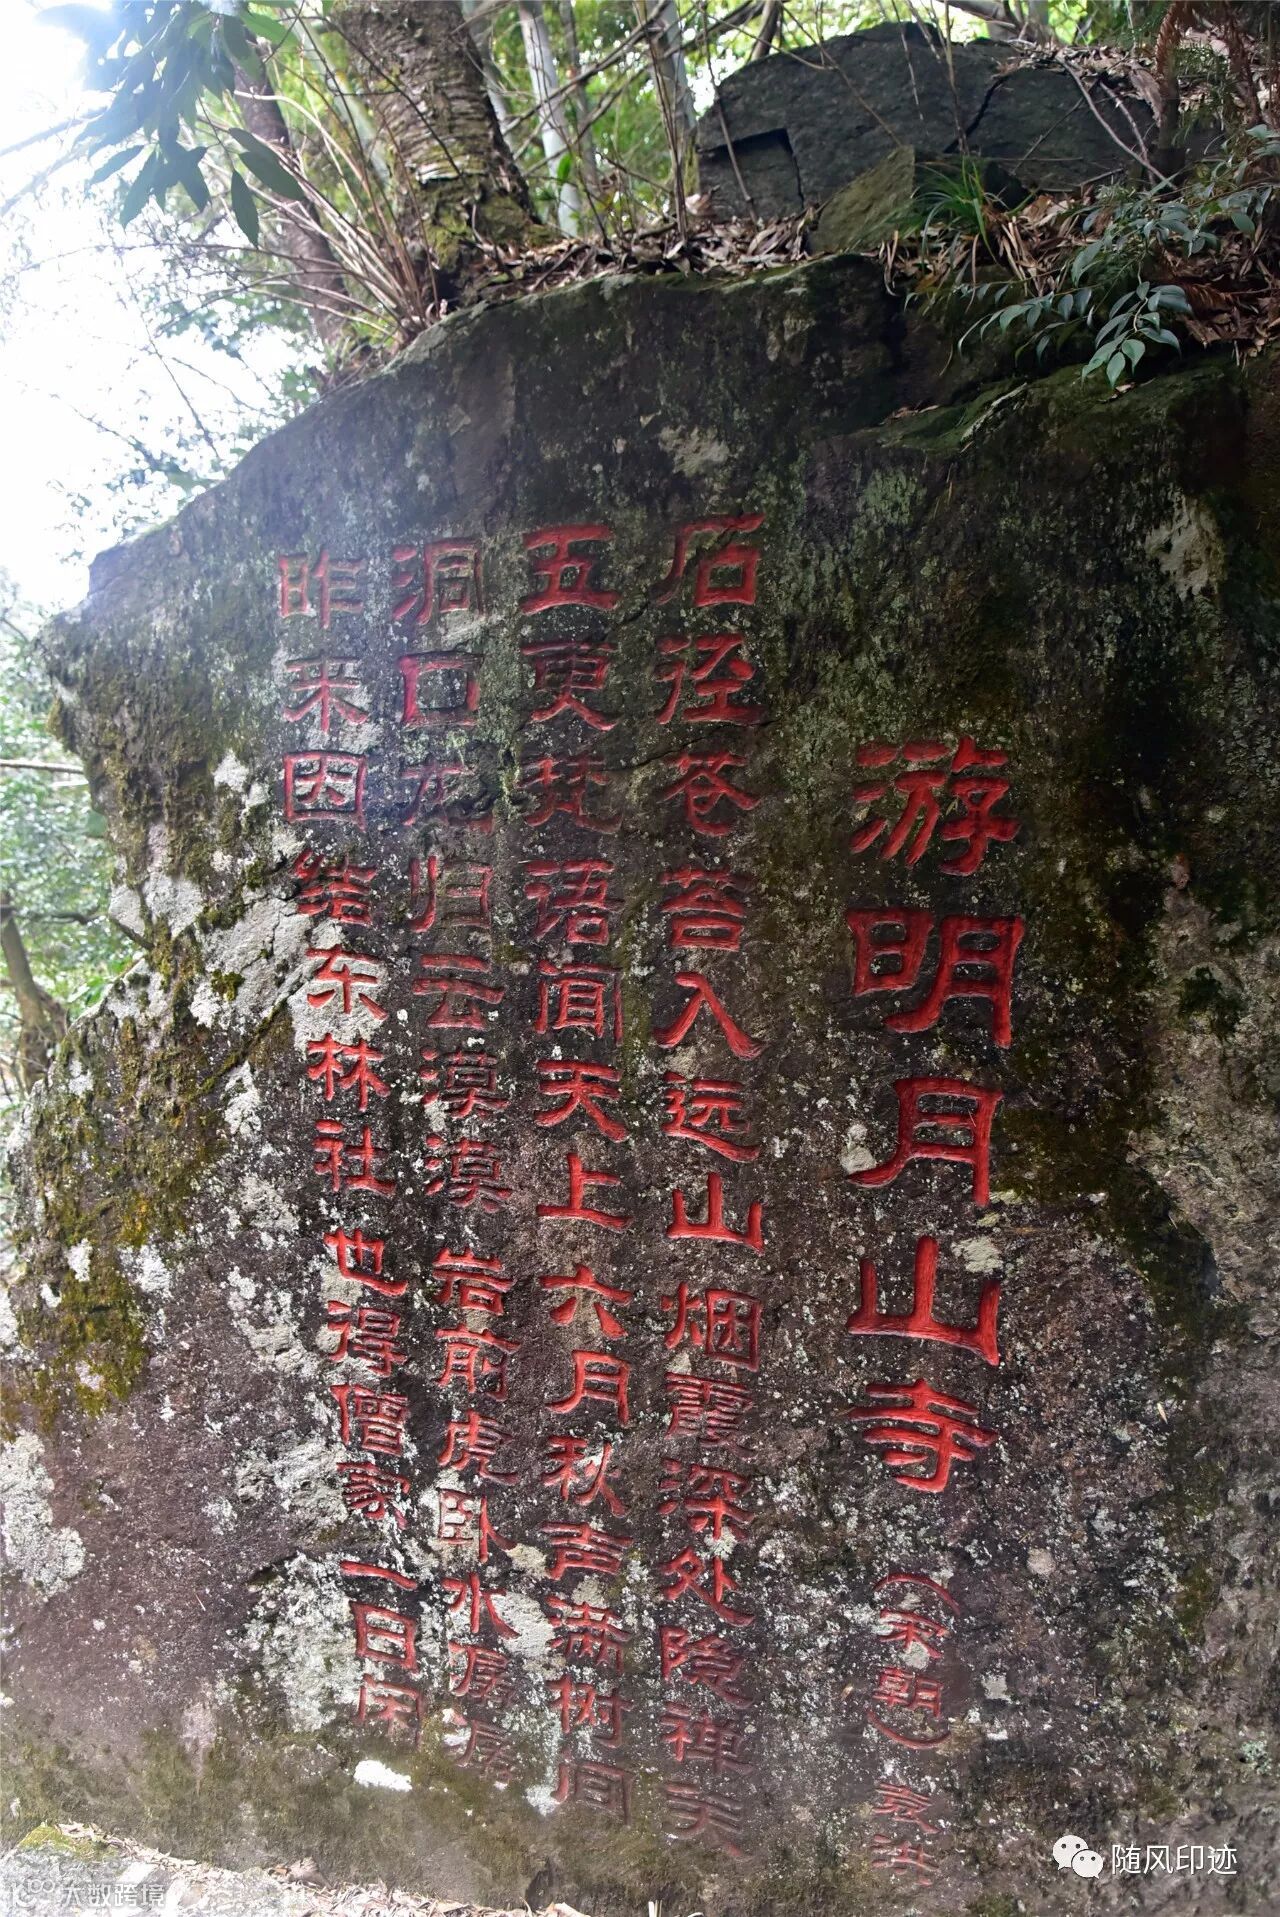 游明月山寺（宋朝）袁洪
石径苍苔入远山烟霞深处隐禅关
五更梵语闻天上六月秋声满树间
洞口龙归云漠漠岩前虎卧水潺潺
昨来因结东林社也得僧家一日闲
随风印迹
大数跨境